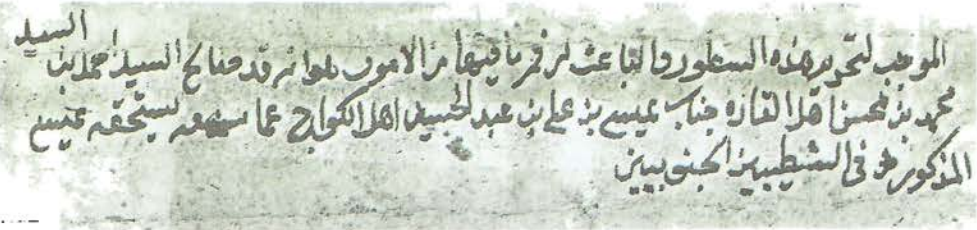 الموجب لتحرير هذه السطور والباعث لرقم ما فيها من الامور هو انه قد صالح السيد احمد بن السيد
محمد بن محسن اهل القاره جناب عيسى بن علي بن عبد الحسين اهل الكوارج عما يستحقه عيسى
المذكور في الشطيبين الجنوبيين